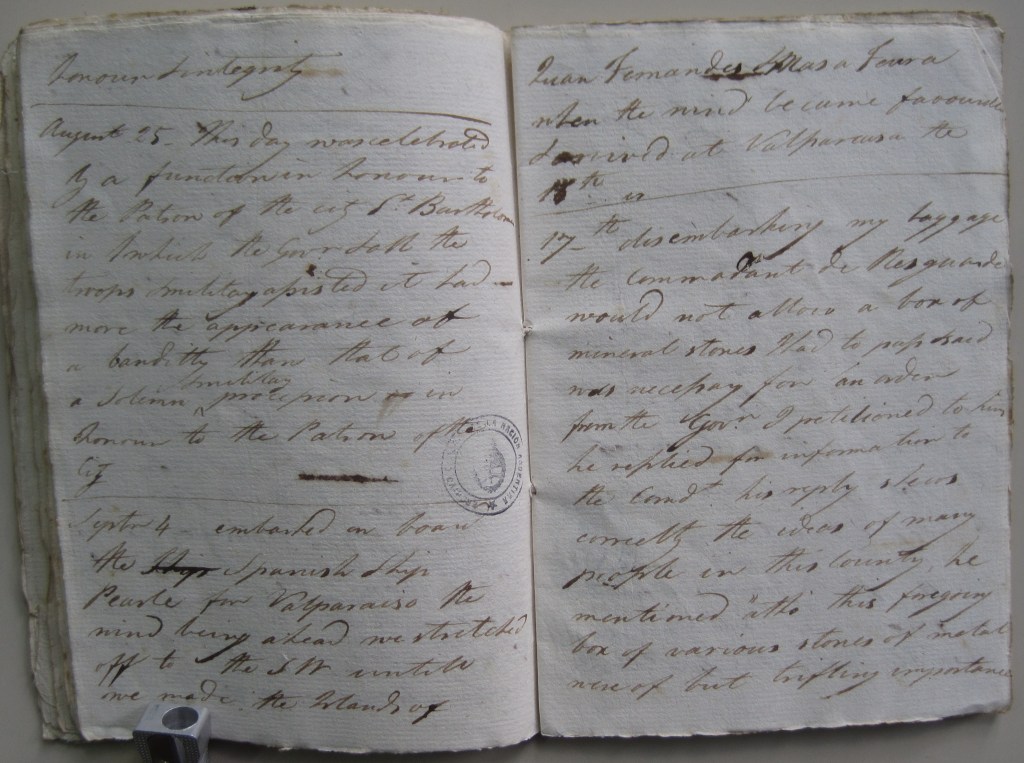 honour & integrity
August 25. This day was celebrated
by a function in honour to
the Patron of the city St. Bartholom
in which the Govr & all the
troops & military assisted it had
more the appearance of
a banditty than that of
a Solemn military procession in
honour to the Patron of the
City
Septr 4 - embarked on board
the Spanish Ship
Pearle for Valparaiso the
wind being ahead we stretched
off to the SW untill
we made the Islands of
Juan Fernandes & Masa Feura
when the wind became favourable
& arrived at Valparaisa the
th
17th disembarking my baggage
the Commadant de Resguarde
would not allow a box of
mineral stones I had to pass & said
was necessary for an order
from the Govr. I petitioned to him
he replied for information to
the Comdt his reply shews
correctly the ideas of many
people in this country, he
mentioned "altho' this foregoing
box of various stones of metal
were of but trifling importance